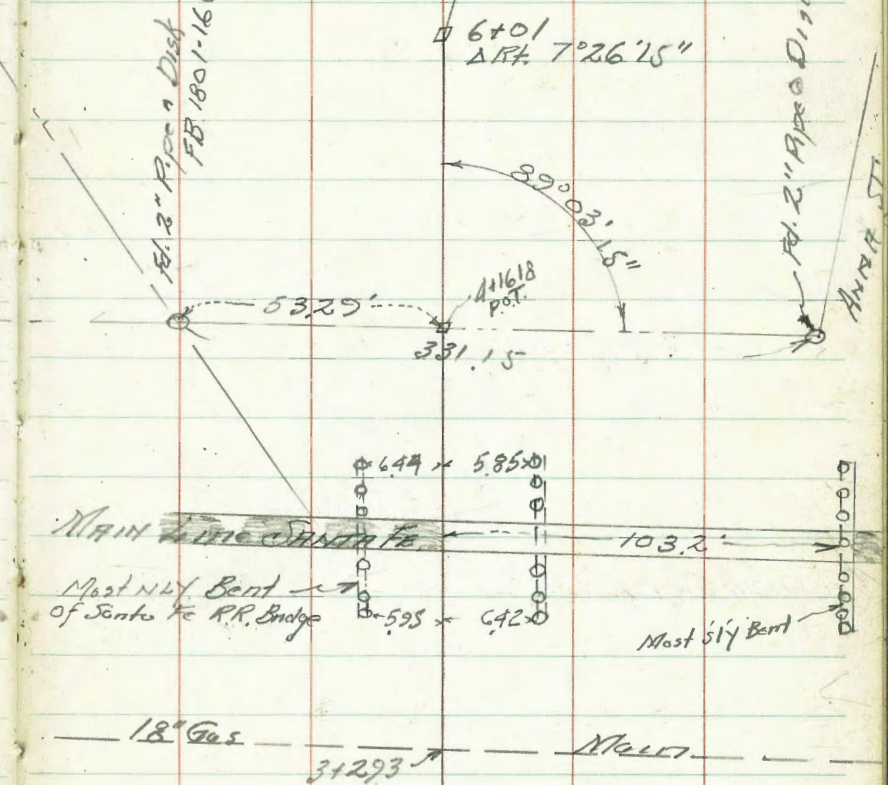 6+01
Δ Rt. 7°26'15"
Fd. 2" Pipe n Disk
FB. 1801-16
Fd. 2" Pipe n Dis
ANNA ST.
89°03'15"
53.29'
4+16.18
P.O.T.
331.15
6.44 5.85
MAIN Line SANTA FE
103.2'
Most NLY Bent
of Santa Fe R.R. Bridge
5.95 6.42
Most s'ly Bent
18" Gas Main
3+293